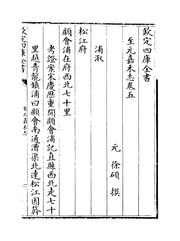 欽定四庫全書
至元嘉禾志卷五
元 徐碩 撰
浦溆
松江府
顧會浦在府西北七十里
考證案宋慶厯章峴開顧會浦記直縣西北走七十
里越青龍鎮浦曰顧會南通漕渠北達松江因幹
欽定四庫全書
至元嘉禾志